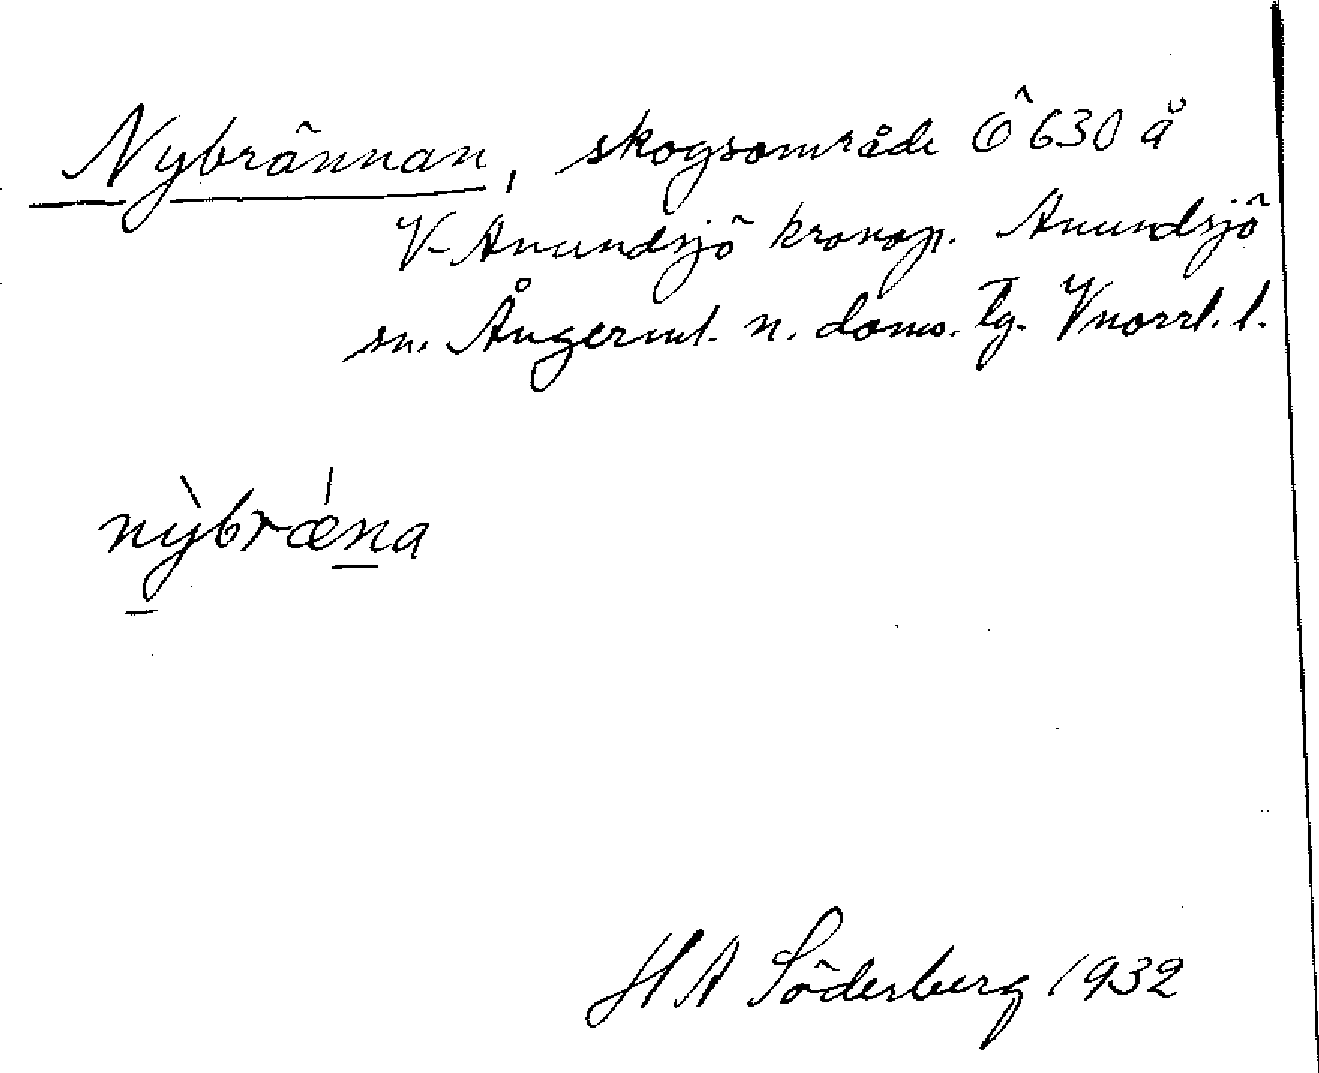 Nybrännan, skogsområde Ö 630 å
V-Anundsjö kronop. Anundsjö
sn. Ångerml. n. doms. tg. Vnorrl. l.
nỳbrǽna
H A Söderberg 1932